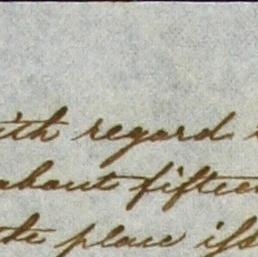 ith regard
about fifteen
the place iss